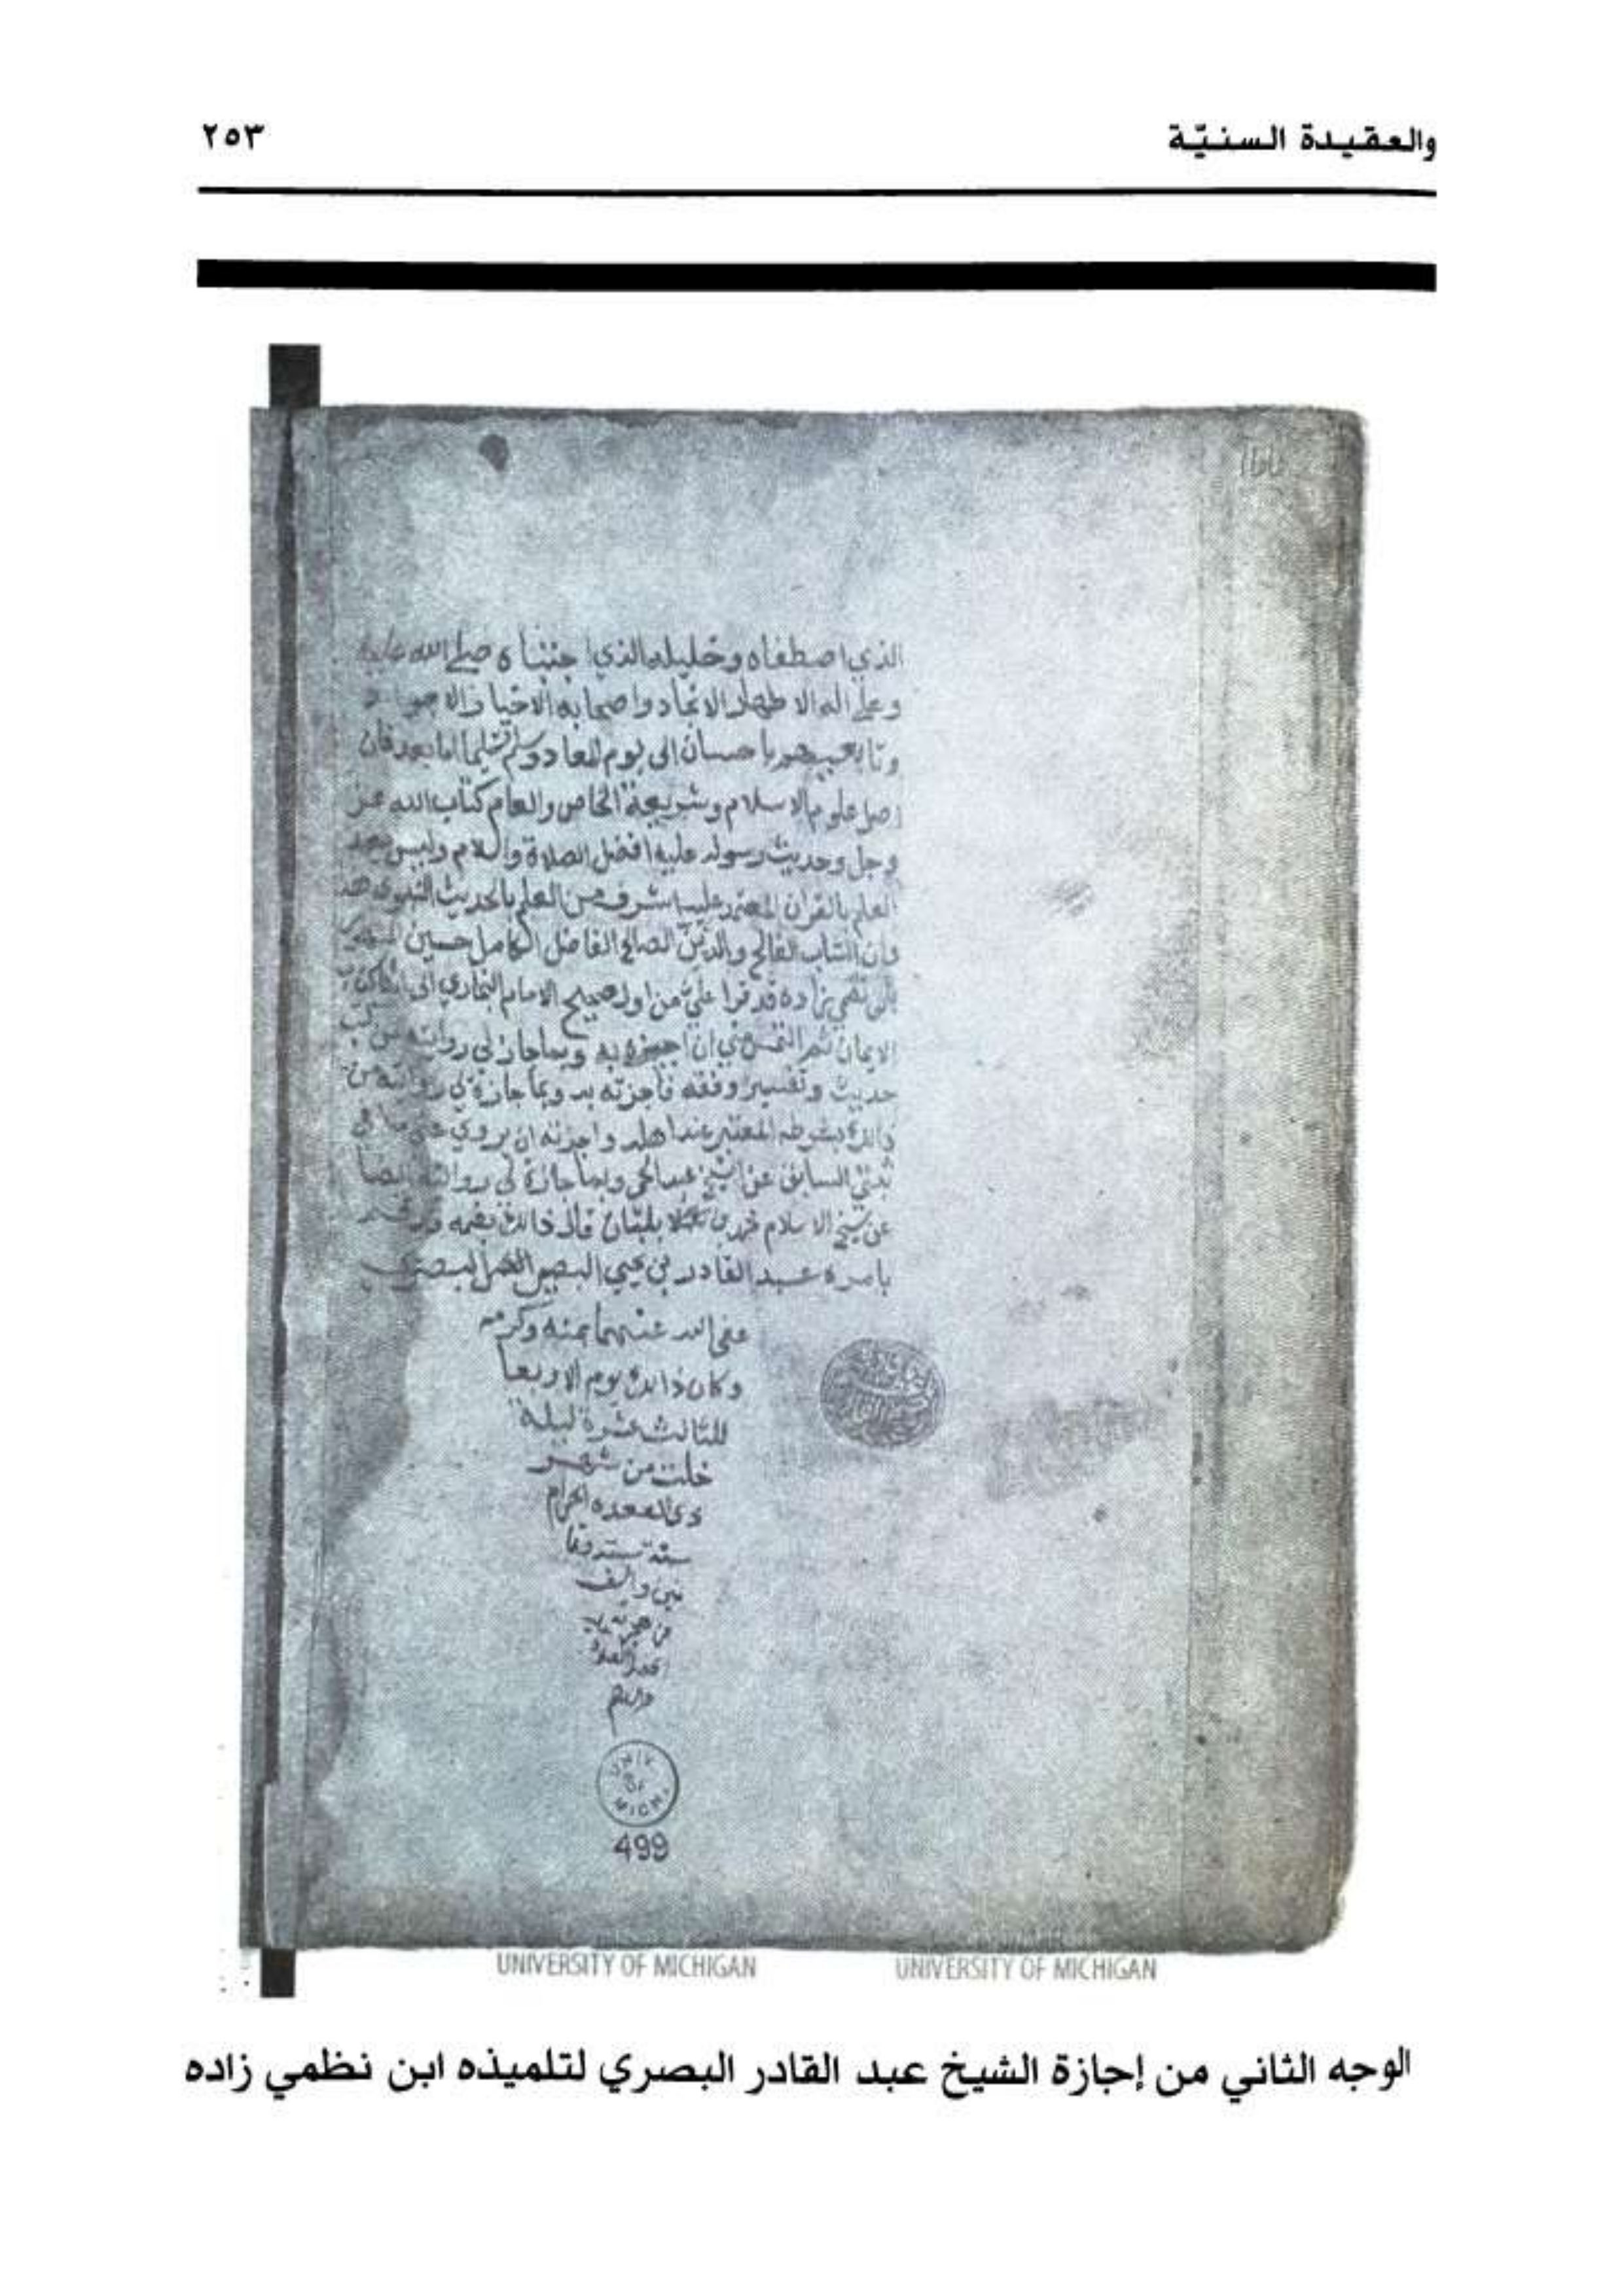 والعقيدة السنيّة ٢٥٣
الذي اصطفاه وخليله الذي اجتباه صلى الله عليه
وعلى اله الاطهار الانجاد واصحابه الاخيار
وتابعيهم باحسان الى يوم المعاد وسلم تسليما اما بعد فان
اصل علوم الاسلام وشريعة الخاص والعام كتاب الله عز
وجل وحديث رسوله عليه افضل الصلاة والسلام وليس بعد
العلم بالقران اشرف من العلم بالحديث النبوي هذا
وان الشاب الفالح والدين الصالح الفاضل الكامل حسين
زاده قد قرا علي من اول صحيح الامام البخاري الى
الايمان ثم التمس مني ان اجيزه به وبما جاز لي روايته من كتب
حديث وتفسير وفقه فاجزته به وبما جازة لي روايته من
ذالك بشرطه المعتبر عند اهله واجزته ان يروي عني ما في
ثبتي السابق عن الشيخ عبد الحي وبما جازة لي روايته ايضا
عن شيخ الاسلام قال ذالك بفمه
بامره عبد القادر بن يحيى البصير البصري
عفى الله عنهما بمنه وكرمه
وكان ذالك يوم الاربعا
للثالث عشرة ليلة
خلت من شهر
ذي القعده الحرام
سنة ستة وثما
نين والف
من هجرته
افضل الصلاة
والسلام
UNIV. OF MICH.
499
UNIVERSITY OF MICHIGAN UNIVERSITY OF MICHIGAN
الوجه الثاني من إجازة الشيخ عبد القادر البصري لتلميذه ابن نظمي زاده